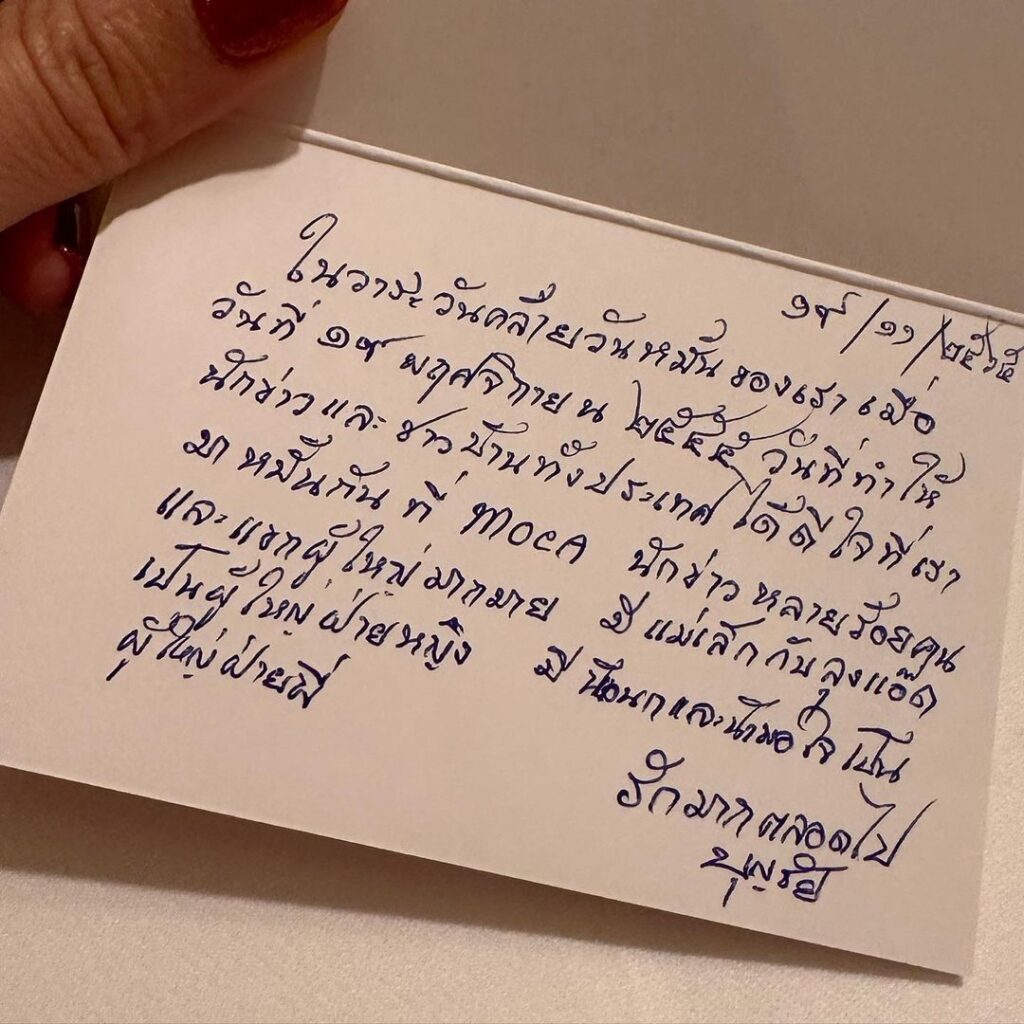 ๑๙/๑๑/๒๕๖๕
ในวาระวันคล้ายวันหมั้นของเราเมื่อ
วันที่ ๑๙ พฤศจิกายน ๒๕๕๕ วันที่ทำให้
นักข่าวและชาวบ้านทั้งประเทศได้ดีใจที่เรา
มาหมั้นกันที่ MOCA นักข่าวหลายร้อยคน
และแขกผู้ใหญ่มากมาย มีแม่เล็กกับลุงแอ๊ด
เป็นผู้ใหญ่ฝ่ายหญิง มี และ เป็น
ผู้ใหญ่ฝ่ายพี่
รักมากตลอดไป
บุญชัย